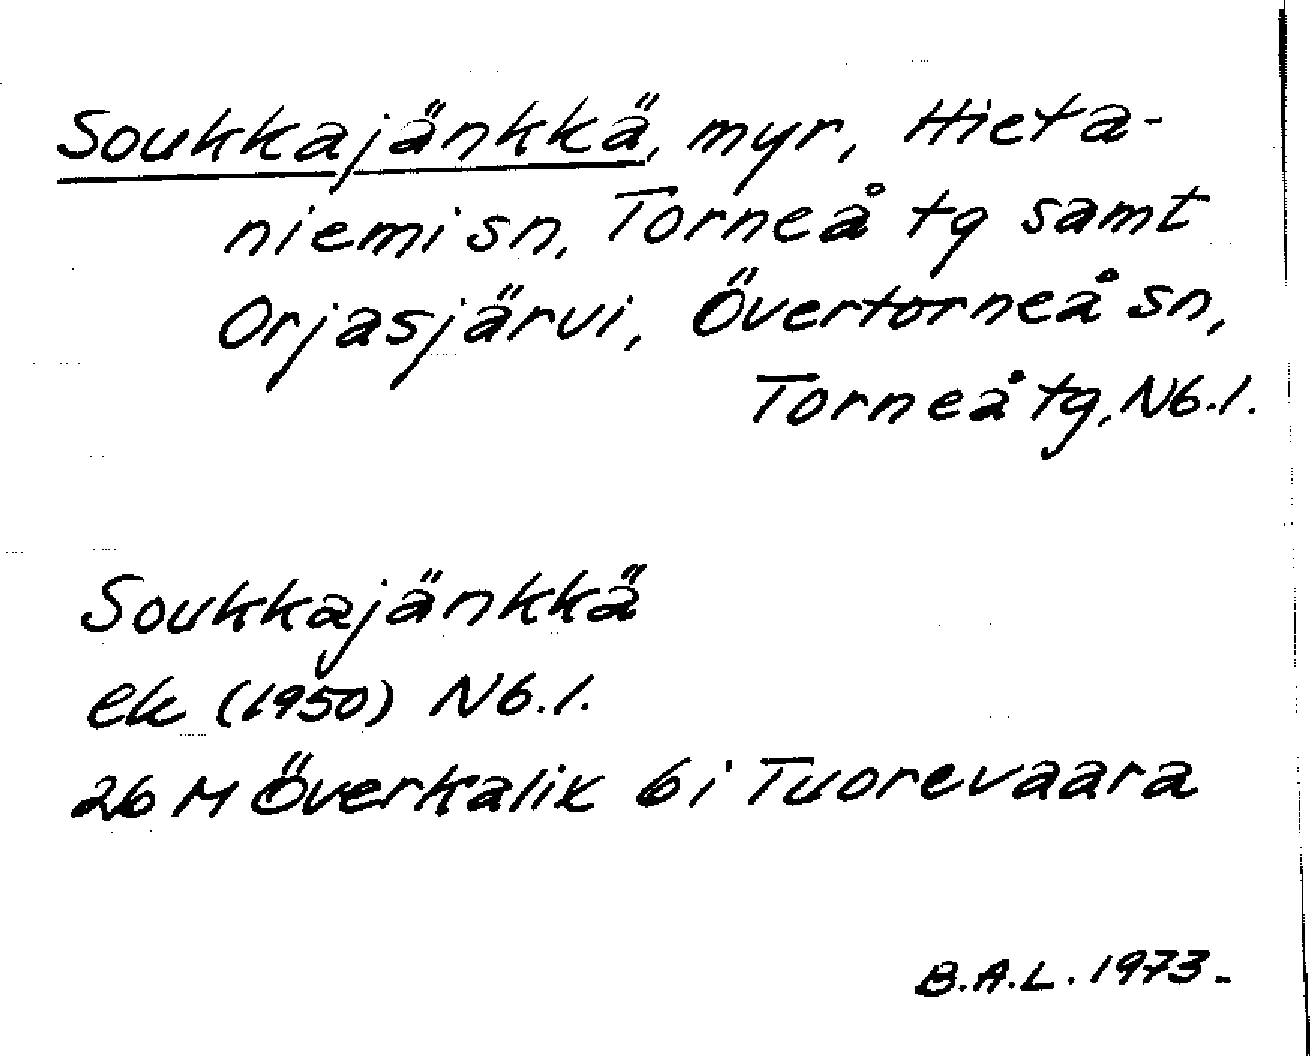 Soukkajänkkä, myr, Hieta-
niemi sn, Torneå tg samt
Orjasjärvi, Övertorneå sn,
Torneå tg, Nb.l.
Soukkajänkkä
ek (1950) Nb.l.
26 M Överkalix 6i Tuorevaara
B.A.L. 1973-